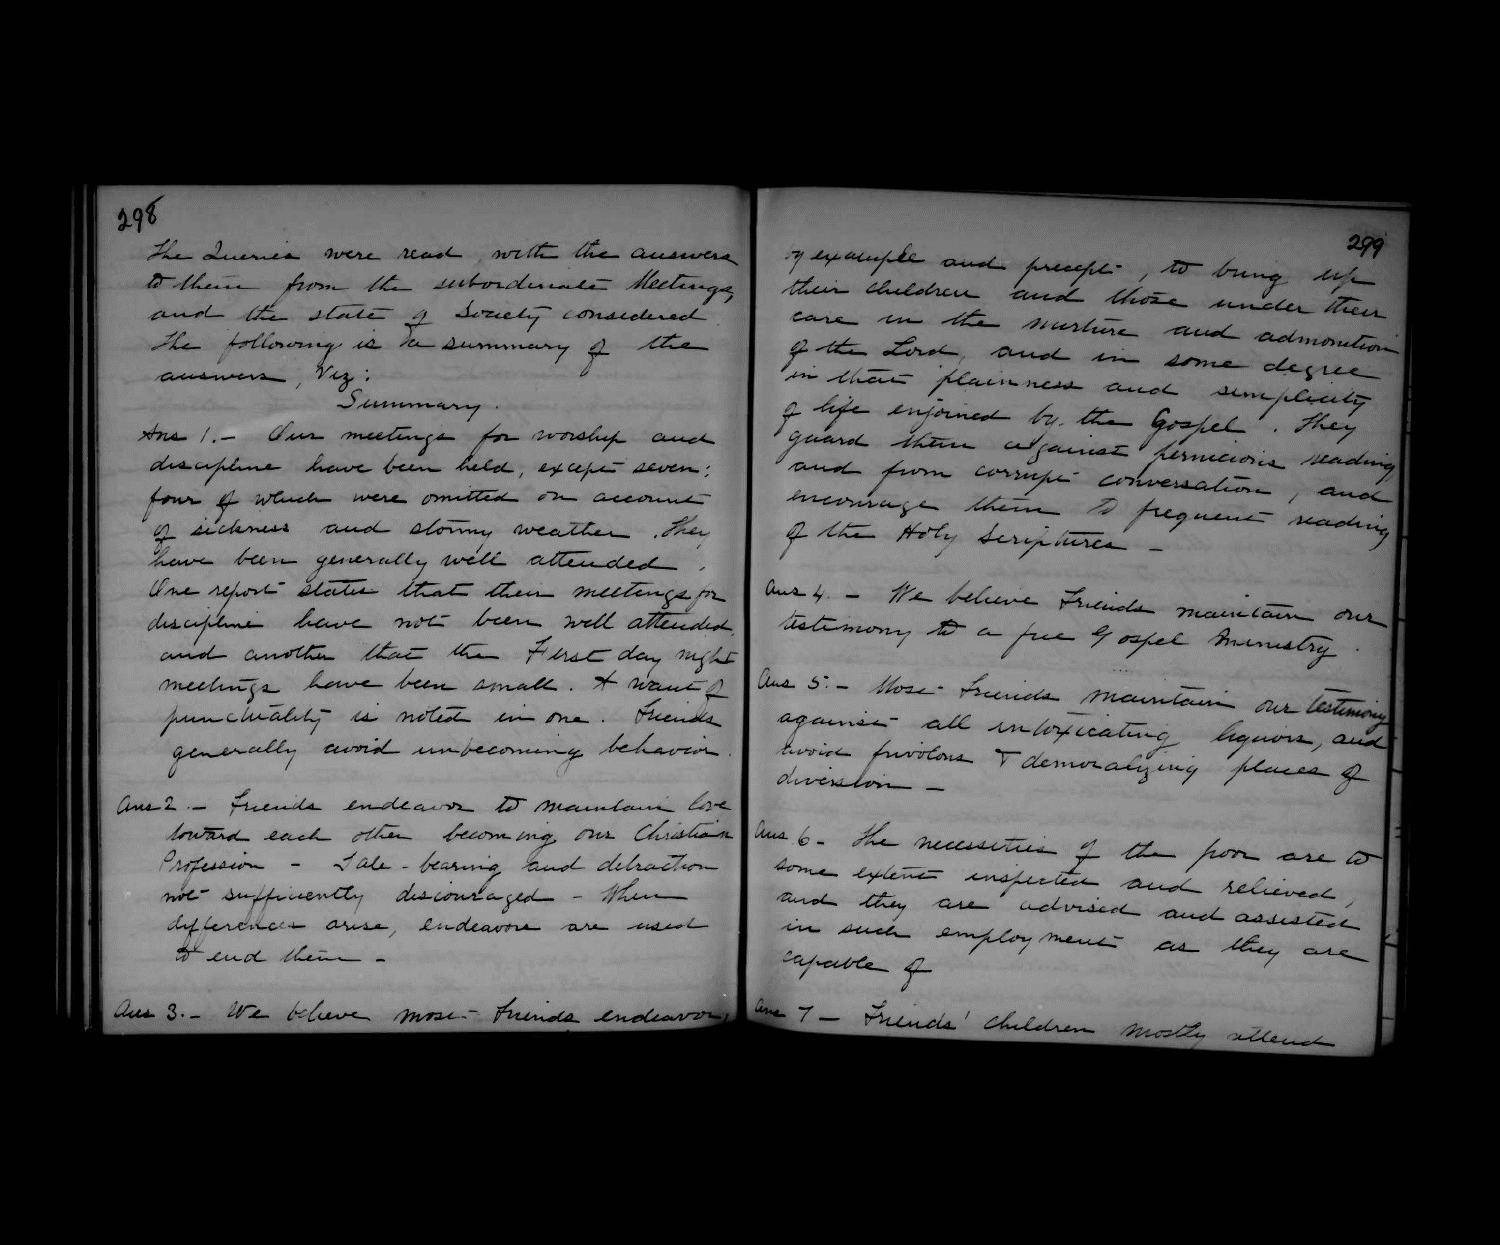 298
The Queries were read, with the answers
to them from the subordinate Meetings,
and the state of Society considered.
The following is a summary of the
answers, Viz:
Summary.
Ans 1. - Our meetings for worship and
discipline have been held, except seven;
four of which were omitted on account
of sickness and stormy weather. They
have been generally well attended.
One report states that their meetings for
discipline have not been well attended,
and another that the First day night
meetings have been small. A want of
punctuality is noted in one. Friends
generally avoid unbecoming behavior.
Ans 2. - Friends endeavor to maintain love
toward each other becoming our Christian
Profession - Tale-bearing and detraction
not sufficiently discouraged - When
differences arise, endeavors are used
to end them -
Ans 3. - We believe most Friends endeavor,
299
by example and precept, to bring up
their children and those under their
care in the nurture and admonition
of the Lord, and in some degree
in that plainness and simplicity
of life enjoined by the Gospel. They
guard them against pernicious reading
and from corrupt conversation, and
encourage them to frequent reading
of the Holy Scriptures -
Ans 4. - We believe Friends maintain our
testimony to a free Gospel Ministry.
Ans 5. - Most Friends maintain our testimony
against all intoxicating liquors, and
avoid frivolous & demoralizing places of
diversion -
Ans 6 - The necessities of the poor are to
some extent inspected and relieved,
and they are advised and assisted
in such employment as they are
capable of
Ans 7 - Friends' children mostly attend